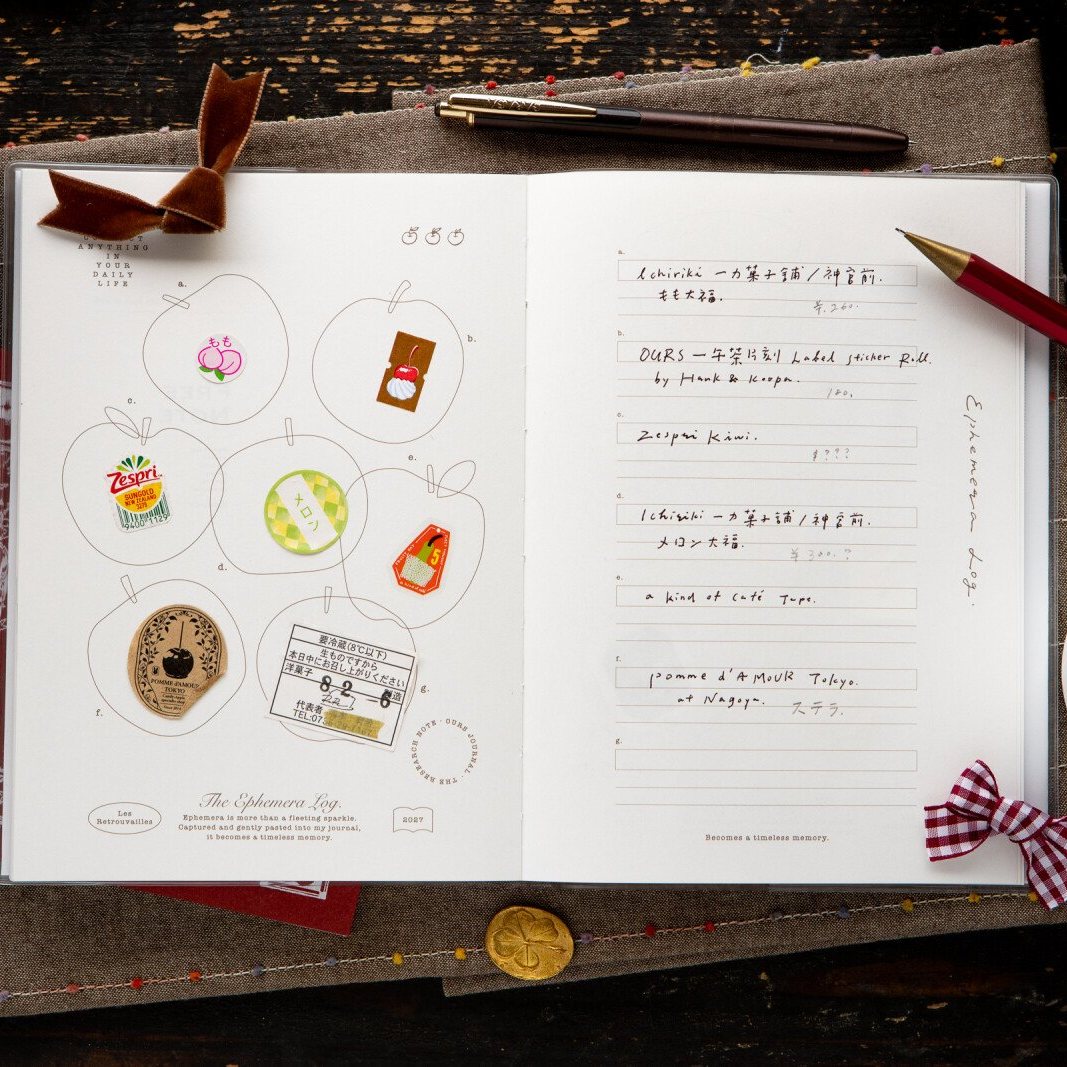 ANYTHING
IN
YOUR
DAILY
LIFE
a.
もも
b.
c.
Zespri
SUNGOLD
NEW ZEALAND
3279
9400 1129
d.
メロン
e.
5
f.
POMME d'AMOUR
TOKYO
g.
要冷蔵(8℃以下)
生ものですから
本日中にお召し上がりください
洋菓子
8 2 -6 製造
代表者
TEL:07
THE RESEARCH NOTE · OURS JOURNAL ·
Les
Retrouvailles
The Ephemera Log.
Ephemera is more than a fleeting sparkle.
Captured and gently pasted into my journal,
it becomes a timeless memory.
2027
a.
Ichiriki 一力菓子舗/神宮前.
もも大福.
¥.260.
b.
OURS 一午茶片刻 Label sticker Roll.
by Hank & Koopa.
180.
c.
Zespri Kiwi.
$???
d.
Ichiriki 一力菓子舗/神宮前.
メロン大福.
¥300.?
e.
a kind of Café Tape.
f.
pomme d'AMOUR Tokyo.
at Nagoya. ステラ.
g.
Becomes a timeless memory.
Ephemera Log.